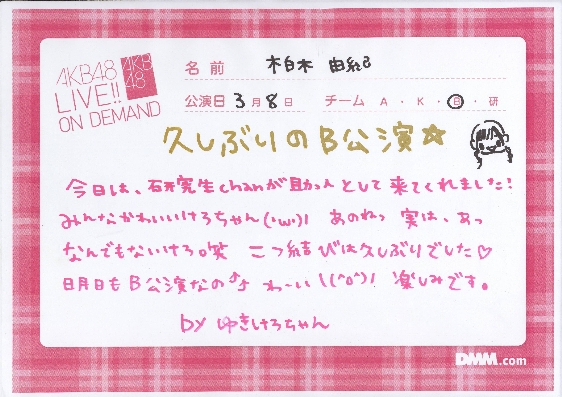 AKB48
LIVE!!
ON DEMAND
AKB
48
名前 柏木 由紀
公演日 3月8日 チーム A・K・B・研
久しぶりのB公演☆
今日は、研究生chanが助っ人として来てくれました!
みんなかわいいけろちゃん(・ω・)! あのねっ 実は、あっ
なんでもないけろ。笑 二つ結びは久しぶりでした♡
明日もB公演なの♪ わーい\(^o^)! 楽しみです。
by ゆきけろちゃん
DMM.com